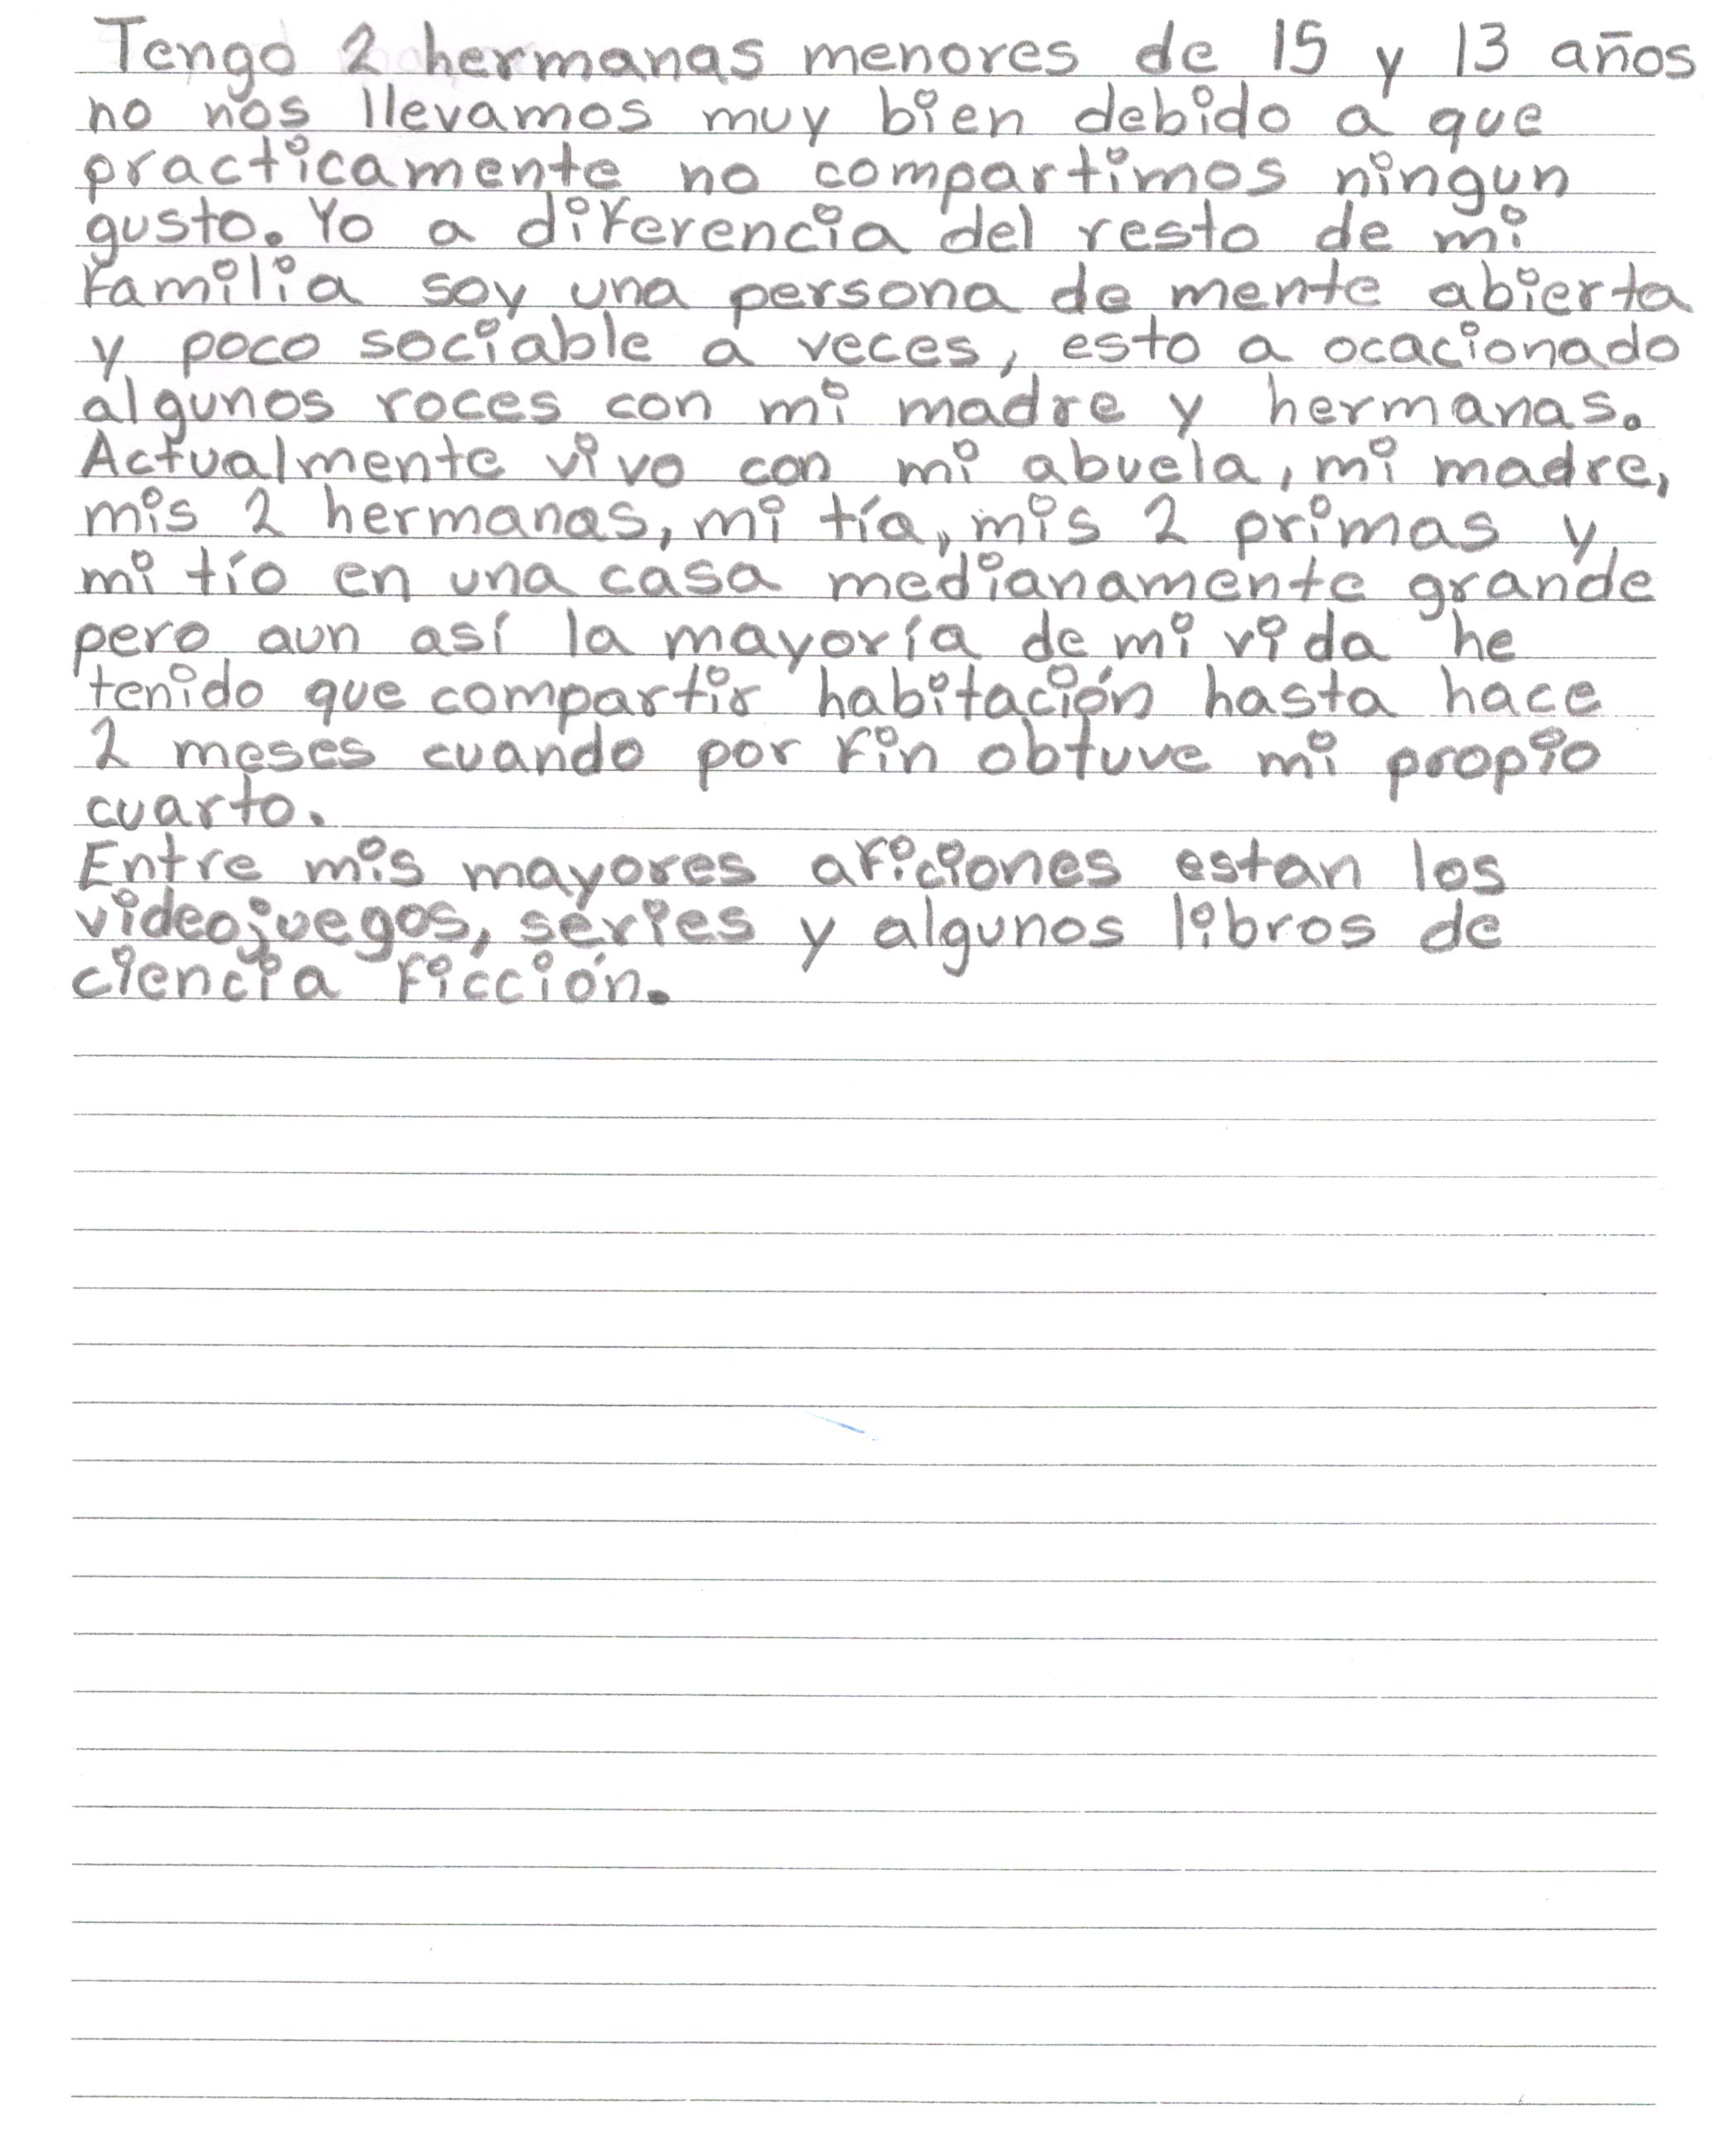 Tengo 2 hermanas menores de 15 y 13 años
no nos llevamos muy bien debido a que
practicamente no compartimos ningun
gusto. Yo a diferencia del resto de mi
familia soy una persona de mente abierta
y poco sociable a veces, esto a ocacionado
algunos roces con mi madre y hermanas.
Actualmente vivo con mi abuela, mi madre,
mis 2 hermanas, mi tía, mis 2 primas y
mi tío en una casa medianamente grande
pero aun así la mayoría de mi vida he
tenido que compartir habitación hasta hace
2 meses cuando por fin obtuve mi propio
cuarto.
Entre mis mayores aficiones estan los
videojuegos, series y algunos libros de
ciencia ficción.